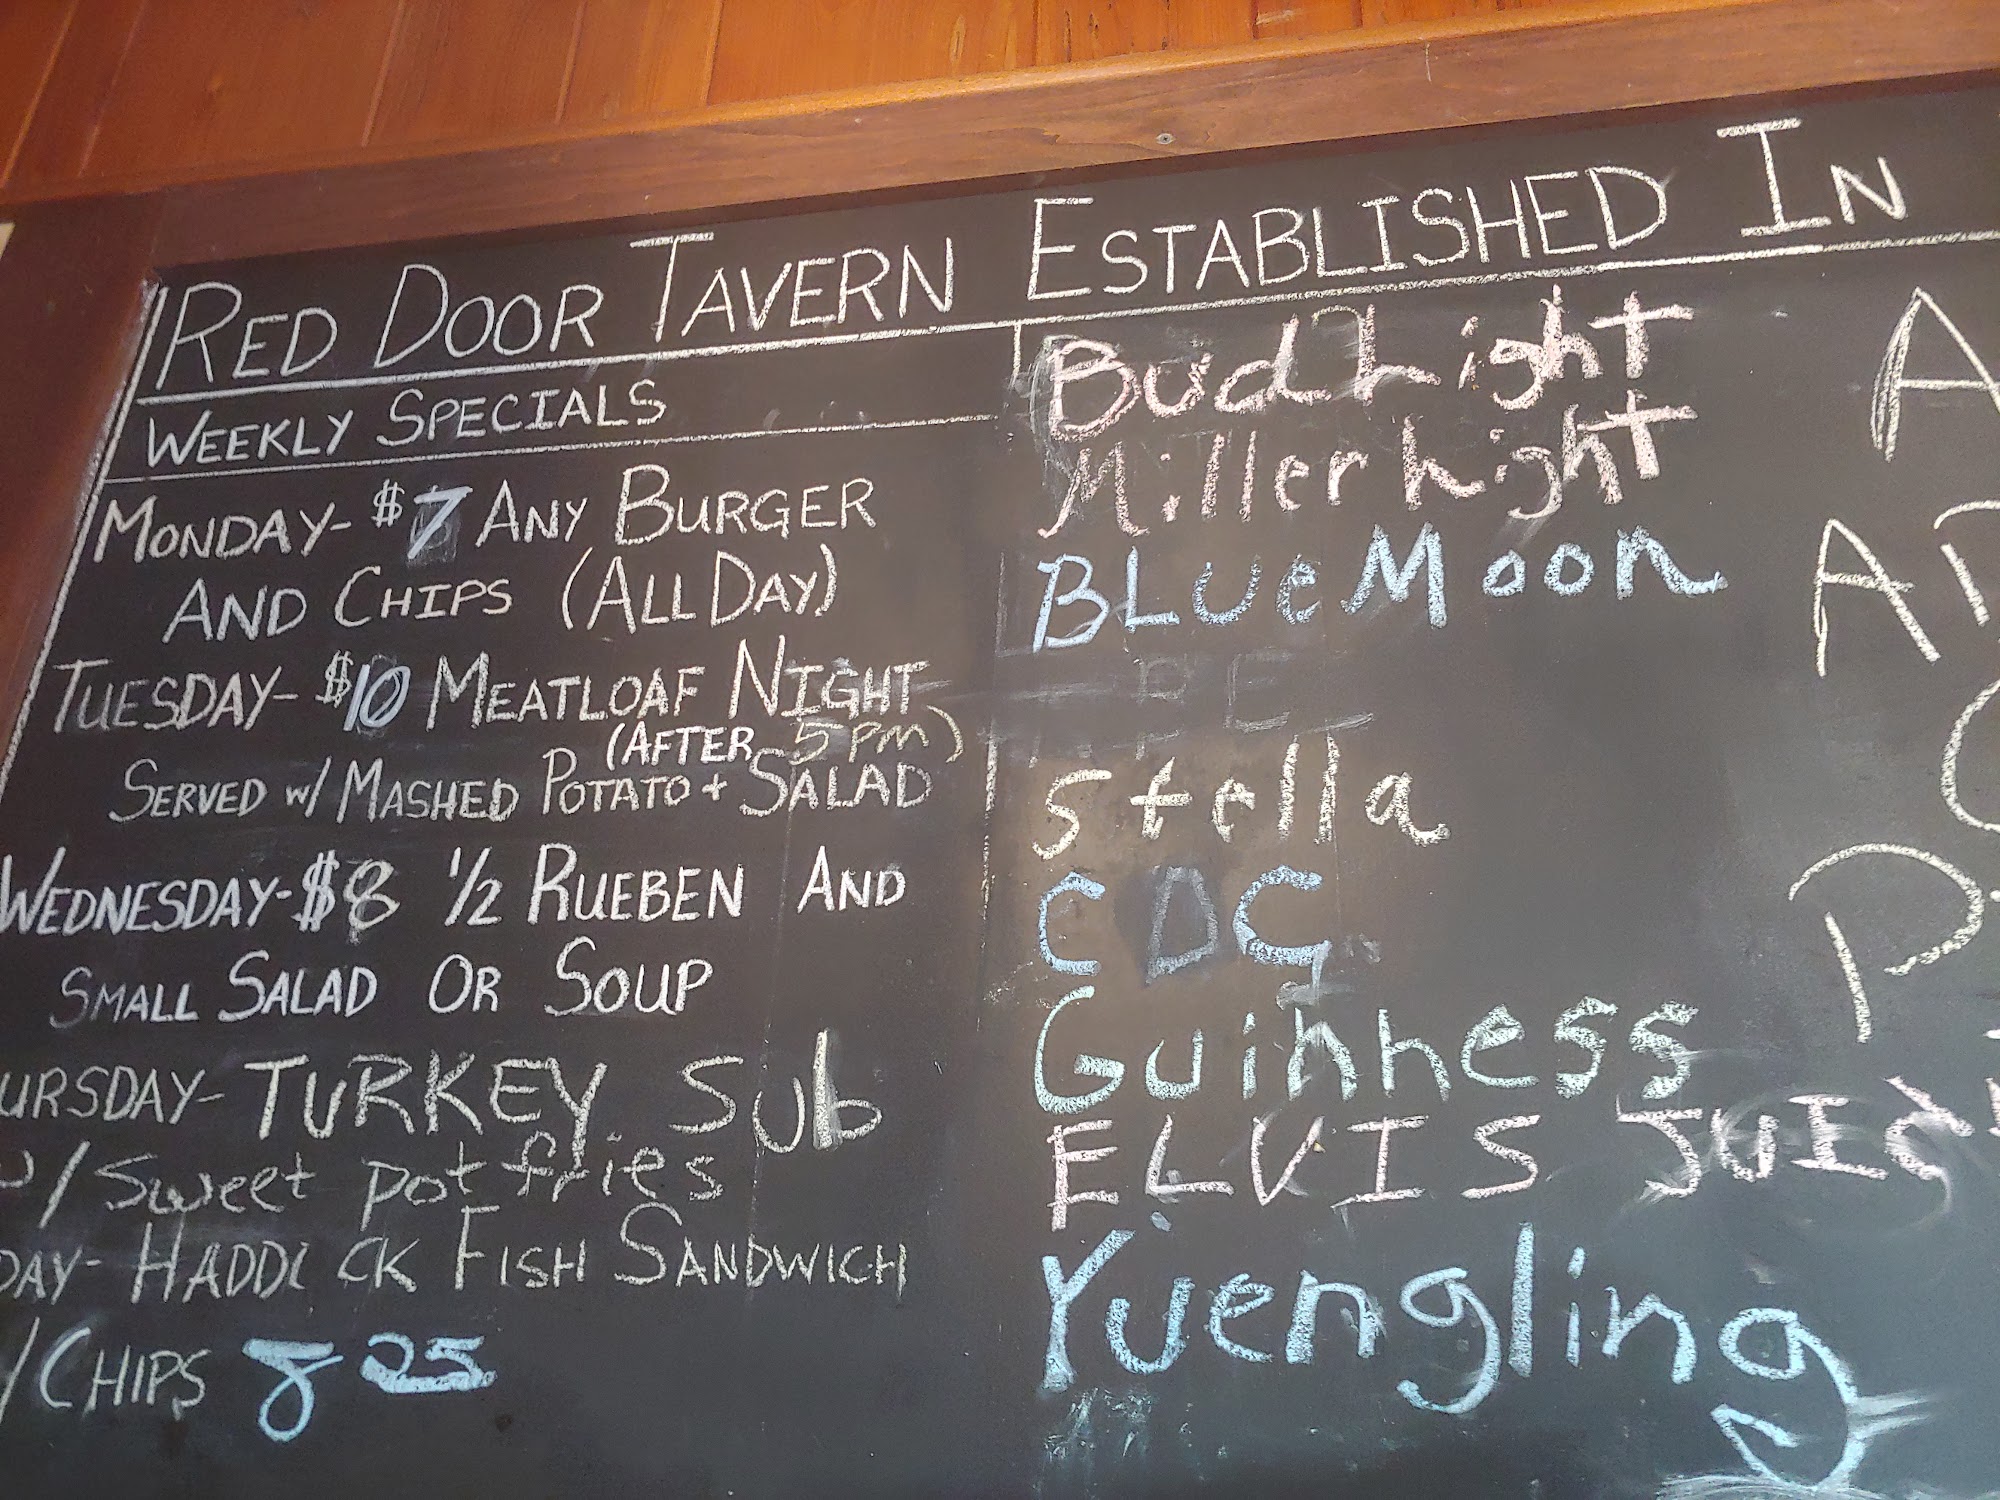 RED DOOR TAVERN ESTABLISHED IN
WEEKLY SPECIALS
MONDAY- $7 ANY BURGER
AND CHIPS (ALL DAY)
TUESDAY- $10 MEATLOAF NIGHT
(AFTER 5 PM)
SERVED W/ MASHED POTATO + SALAD
WEDNESDAY- $8 1/2 RUEBEN AND
SMALL SALAD OR SOUP
URSDAY- TURKEY Sub
W/ Sweet pot fries
DAY- HADDICK FISH SANDWICH
/CHIPS 8 25
Bud Light
Miller Light
BLue Moon
Stella
Guinness
ELVIS JUIC
Yuengling
A
AP
P